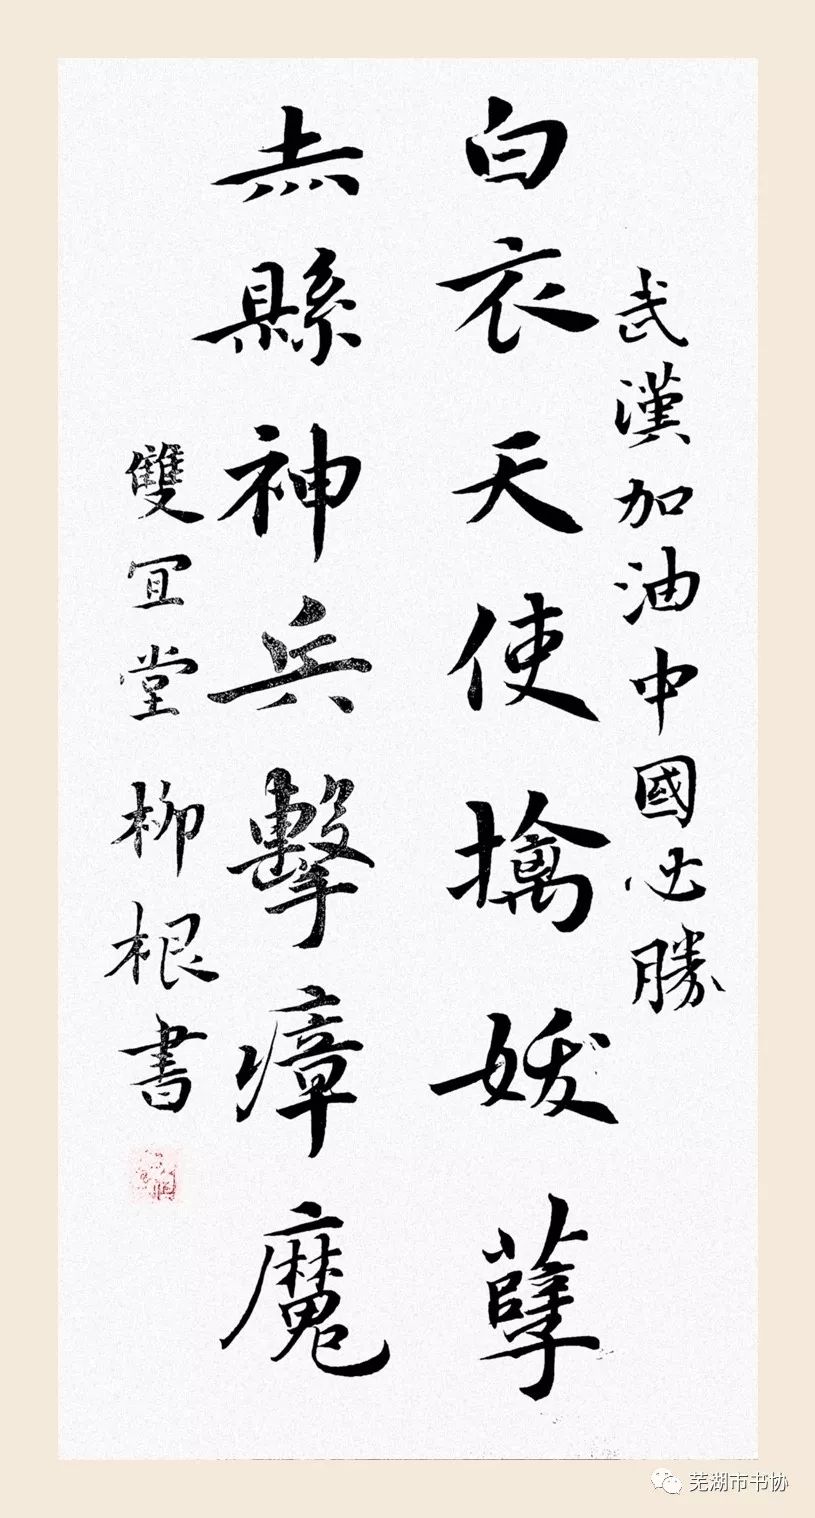 武漢加油中國必勝
白衣天使擒妭孽
赤縣神兵擊瘴魔
雙冝堂柳根書
芜湖市书协